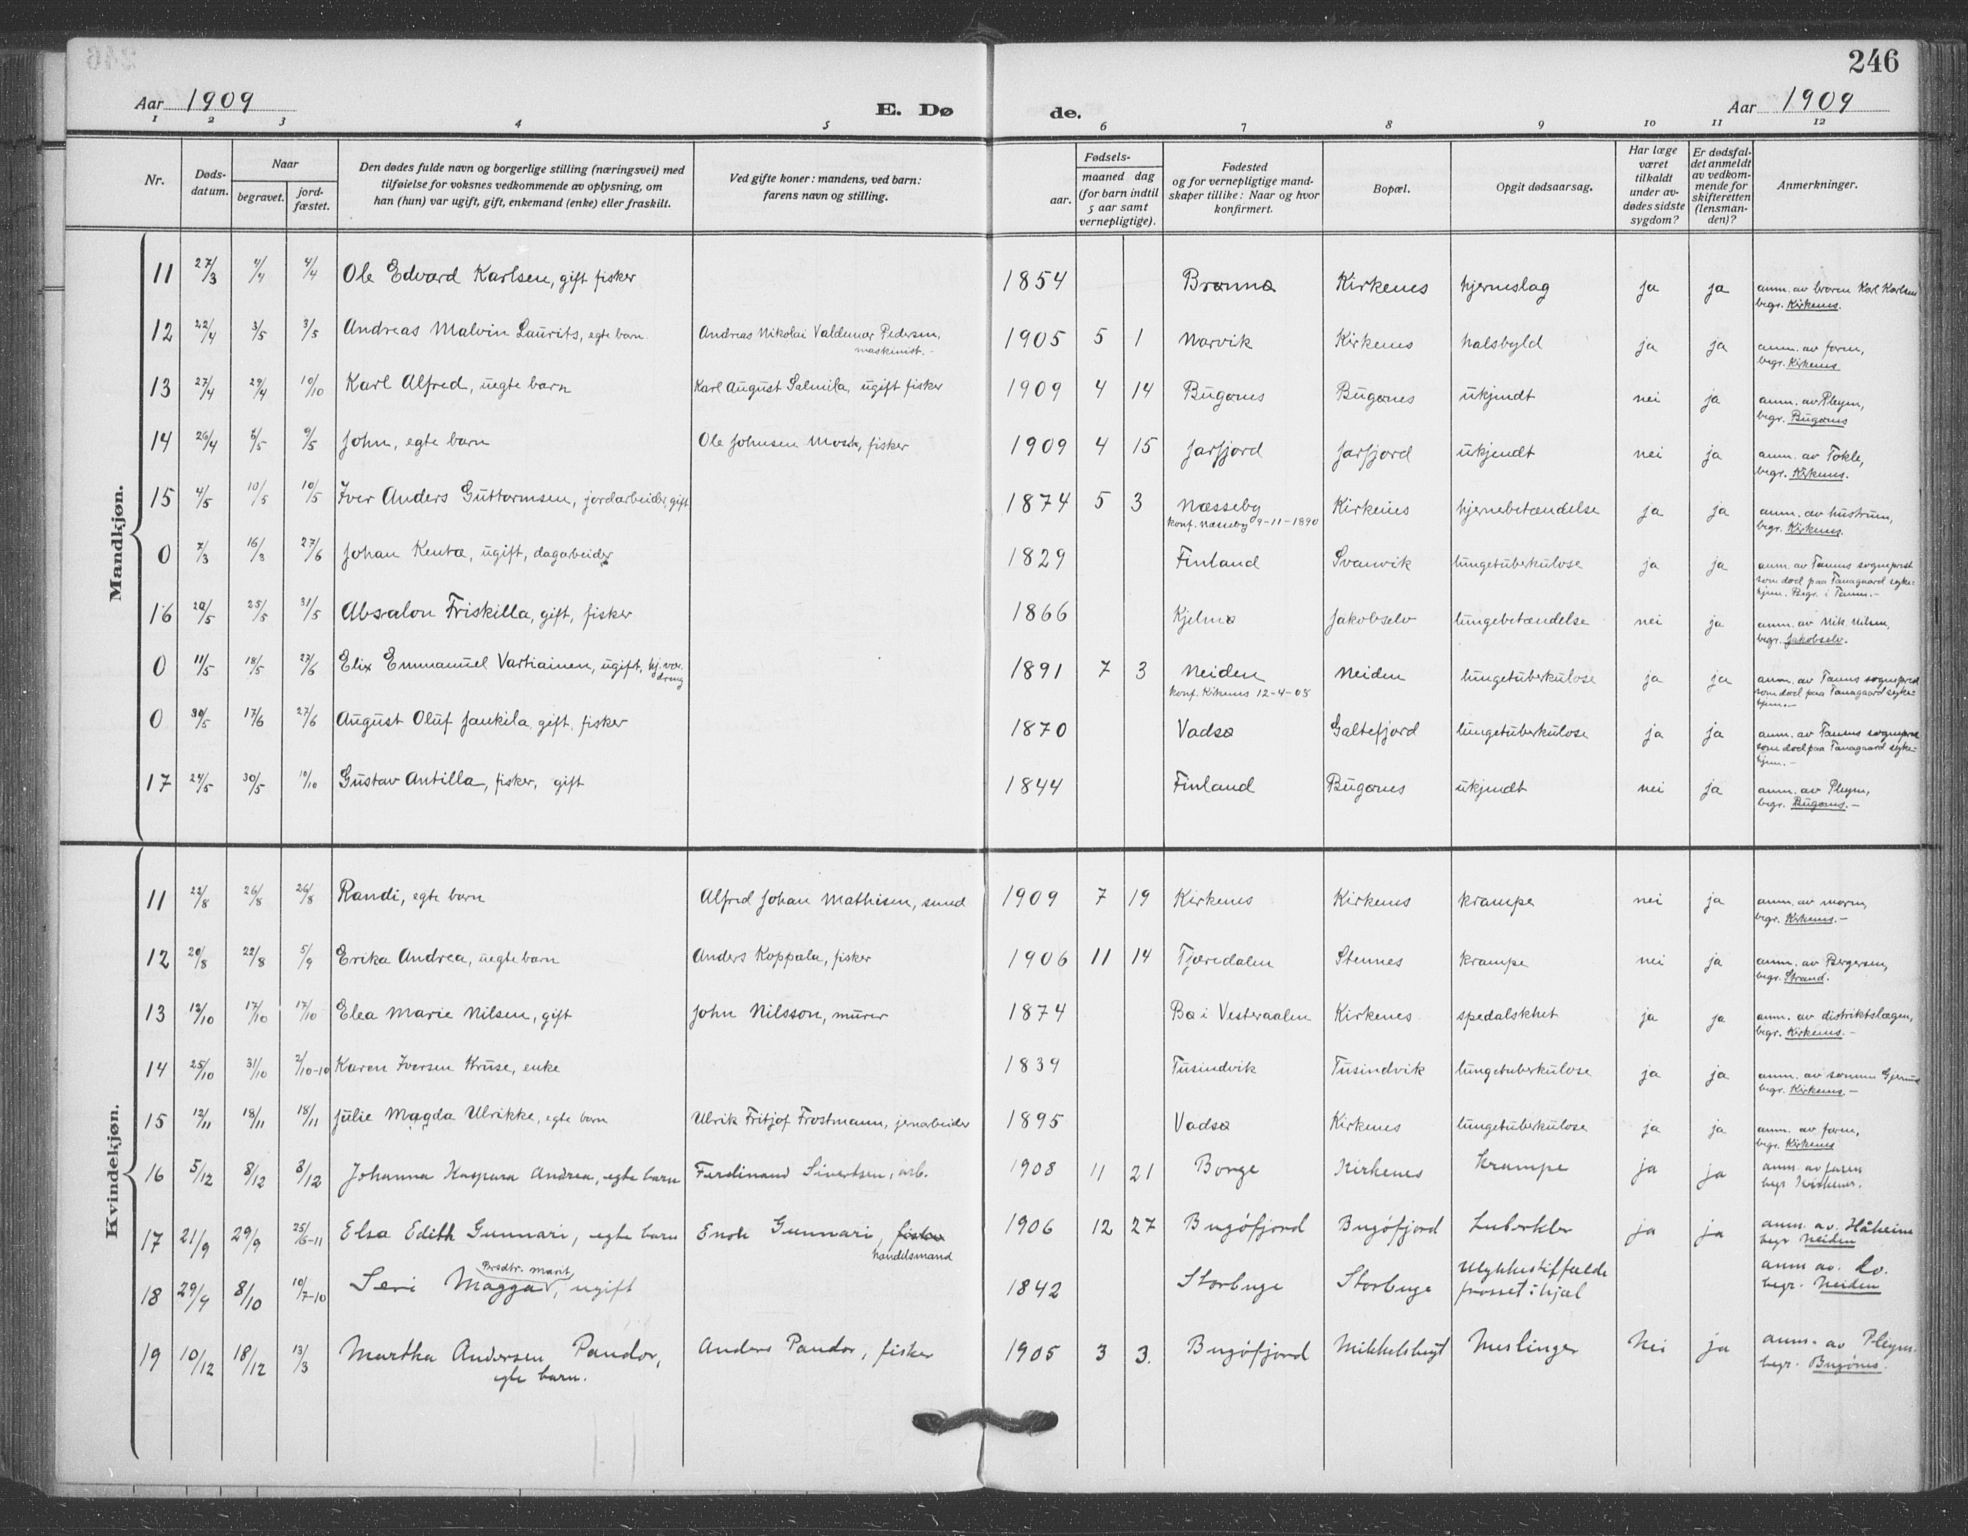 246
Aar 1909
E. Dø de.
Aar 1909
1 2 3 4 5 6 7 8 9 10 11 12
Nr.
Døds-
datum.
Naar
begravet.
jord-
fæstet.
Den dødes fulde navn og borgerlige stilling (næringsvei) med
tilføielse for voksnes vedkommende av oplysning, om
han (hun) var ugift, gift, enkemand (enke) eller fraskilt.
Ved gifte koner: mandens, ved barn:
farens navn og stilling.
Fødsels-
aar.
maaned dag
(for barn indtil
5 aar samt
vernepligtige).
Fødested
og for vernepligtige mand-
skaper tillike: Naar og hvor
konfirmert.
Bopæl.
Opgit dødsaarsag.
Har læge
været
tilkaldt
under av-
dødes sidste
sygdom?
Er dødsfal-
det anmeldt
av vedkom-
mende for
skifteretten
(lensman-
den)?
Anmerkninger.
Mandkjøn.
11 27/3 4/4 4/4 Ole Edvard Karlsen, gift fisker 1854 Brønnø Kirkenes hjerneslag ja ja anm. av broren Karl Karlsen
begr. Kirkenes.
12 22/4 3/5 3/5 Andreas Malvin Laurits, egte barn Andreas Nikolai Valdemar Pedersen, 1905 5 1 Narvik Kirkenes halsbyld ja ja anm. av faren,
maskinist.- begr. Kirkenes
13 27/4 29/4 10/10 Karl Alfred, uegte barn Karl August Salmila, ugift fisker 1909 4 14 Bugønes Bugønes ukjendt nei ja anm. av Pleym,
begr. Bugønes
14 26/4 5/5 9/5 John, egte barn Ole Johnsen Mosk, fisker 1909 4 15 Jarfjord Jarfjord ukjendt nei ja anm. av Tokle,
begr. Kirkenes.
15 4/5 10/5 10/5 Iver Anders Guttormsen, jordarbeider, gift 1874 5 3 Næsseby Kirkenes hjernebetændelse ja ja anm. av hustrum,
konf. Næsseby 9-11-1890 begr. Kirkenes.
0 7/3 16/3 27/6 Johan Kentæ, ugift, dagarbeider 1829 Finland Svanvik lungetuberkulose ja ja anm. av Tanens sogneprest
som død paa Tanagaard syke-
hjem. Begr. i Tanen.-
16 20/5 25/5 31/5 Absalon Friskilla, gift, fisker 1866 Kjelmø Jakobselv lungebetændelse nei ja anm. av Nik. Nilsen,
begr. Jakobselv.
0 11/5 18/5 27/6 Elix Emmanuel Vartiainen, ugift, 1891 7 3 Neiden Neiden lungetuberkulose ja ja anm. av Tanens sogneprest
dreng konf. Kirkenes 12-4-08 som død paa Tanagaard syke-
hjem.-
0 30/5 17/6 27/6 August Oluf Jankila, gift, fisker 1870 Vadsø Galtefjord lungetuberkulose ja ja anm. av Tanens sogneprest
som død paa Tanagaard syke-
hjem.-
17 24/5 30/5 10/10 Gustav Antilla, fisker, gift 1844 Finland Bugønes ukjendt nei ja anm. av Pleym,
begr. Bugønes.-
Kvindekjøn.
11 22/8 26/8 26/8 Randi, egte barn Alfred Johan Mathisen, smed 1909 7 19 Kirkenes Kirkenes krampe nei ja anm. av moren,
begr. Kirkenes.-
12 20/8 22/8 5/9 Erika Andrea, uegte barn Anders Koppala, fisker 1906 11 14 Tjæredalen Stennes krampe nei ja anm. av Bergersen,
begr. Strand.
13 12/10 17/10 17/10 Elea Marie Nilsen, gift John Nilsson, murer 1874 Bø i Vesteraalen Kirkenes spedalskhet ja ja anm. av distriktslægen,
begr. Kirkenes.-
14 25/10 31/10 2/10-10 Karen Iversen Kruse, enke 1839 Tusindvik Tusindvik lungetuberkulose ja ja anm. av sønnen
begr. Kirkenes.-
15 12/11 18/11 18/11 Julie Magda Ulrikke, egte barn Ulrik Fritjof Frostmann, jernarbeider 1895 Vadsø Kirkenes lungetuberkulose ja ja anm. av faren,
begr. Kirkenes
16 5/12 8/12 8/12 Johanna Kaspara Andrea, egte barn Ferdinand Sivertsen, arb. 1908 11 21 Borge Kirkenes Krampe ja ja anm. av faren
begr Kirkenes.
17 21/9 29/9 25/6-11 Elsa Edith Gunnari, egte barn Enok Gunnari, fisker 1906 12 27 Bugöfjord Bugöfjord Tuberkler ja ja anm. av. Håheim
handelsmand begr Neiden
18 29/9 8/10 10/7-10 Seri Magga, ugift 1842 Storbuge Storbuge Ulykkestilfælde anm av. Do.
Brodtr. Marit frosset ihjæl begr. Neiden
19 10/12 18/12 13/3 Martha Andersen Pandor, Anders Pandor, fisker 1905 3 3. Bugöfjord Mikkelsnyt Meslinger Nei ja anm. av Pleym.
egte barn. begr. Bugönes.